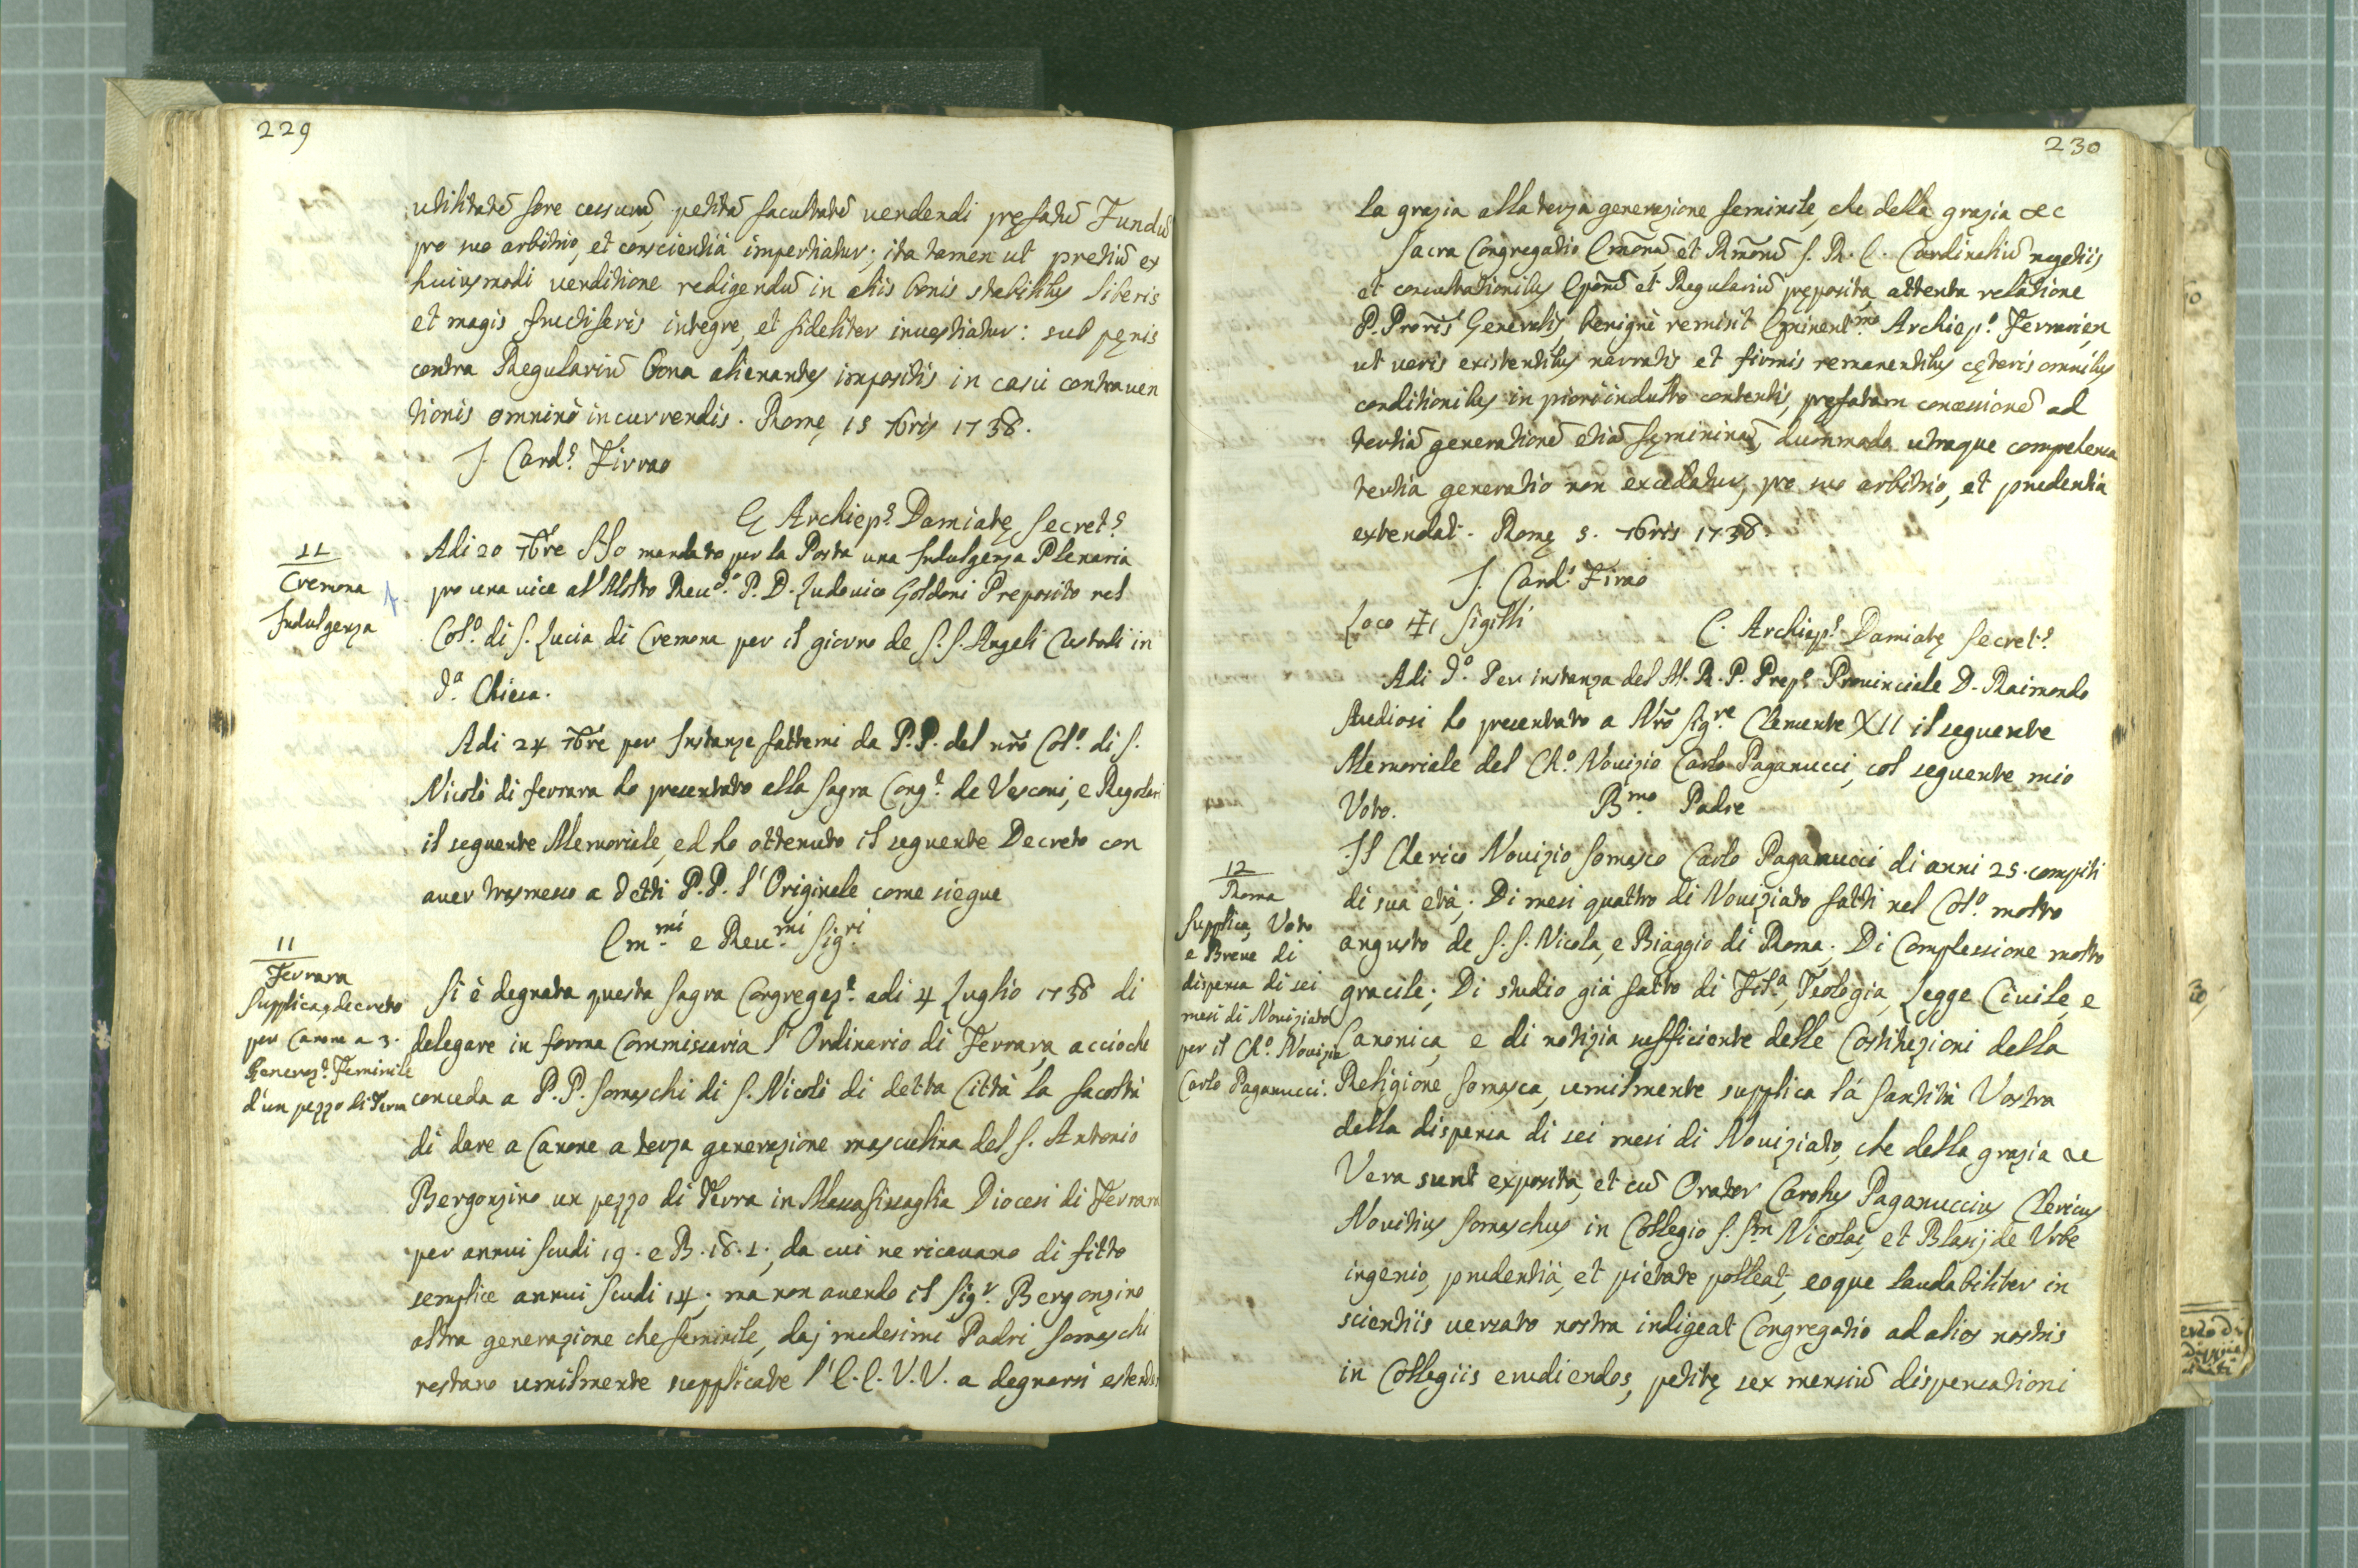 229
utilitatē fore cessurā, petitā facultatē vendendi pręfatū Fundū
pro suo arbitrio, et conscientiā impertiatur; ita tamen ut pretiū ex
huiusmodi venditione redigendū in aliis bonis stabilibus liberis
et magis fructiferis integre, et fideliter investiatur: sub pęnis
contra Regulariū bona alienantes impositis in casu contraven
tionis omninò incurrendis. Romę 15 7bris 1738.
J. Cards. Firrao
C Archieps. Damiatę Secrets.
11
Cremona
Indulgenza
Adi 20 7bre Ho mandato per la Posta una Indulgenza Plenaria
pro una vice al Molto Revdo. P. D. Ludovico Goldoni Preposito nel
Colo. di S. Lucia di Cremona per il giorno de S.S. Angeli Custodi in
da. Chiesa.
Adi 24 7bre per Instanze fattemi da P.P. del nrō Colo. di S.
Nicolò di ferrara ho presentato alla Sagra Conge. de Vescovi, e Regolari
il seguente Memoriale, ed ho ottenuto il seguente Decreto con
aver trasmesso a detti P.P. l'Originale come siegue
Emmi. e Revmi. Sigri.
11
Ferrara
Supplica, e decreto
per Canone a 3.
Generaze. Feminile
d'un pezzo di Terra
Si è degnata questa Sagra Congregaze. adi 4 Luglio 1738 di
delegare in forma Commissaria l'Ordinario di Ferrara, accioche
conceda a P.P. Somaschi di S. Nicolò di detta Città la facoltà
di dare a Canone a terza generazione masculina del S. Antonio
Bergonzino un pezzo di Terra in Massafiscaglia Diocesi di Ferrara
per annui Scudi 19. e B. 18. 1., da cui ne ricavano di fitto
semplice annui Scudi 14; ma non avendo il Sigr. Bergonzino
altra generazione che feminile, daj medesimi Padri Somaschi
restano umilmente supplicate l'E.E. V.V. a degnarsi estender
230
la grazia alla terza generazione feminile, che della grazia &c
Sacra Congregatio Emōrū, et Rmōrū S. R. E. Cardinaliū negotiis
et consultationibus Epōrū et Regulariū pręposita, attenta relatione
P. Proris Generalis, benignè remisit Eminentmo. Archiepo. Ferrarien
ut veris existentibus narratis et firmis remanentibus cęteris omnibus
conditionibus in priori indulto contentis, pręfatam concessionē ad
tertiā generationē etiā fęmininā, dummodo utraque competens
tertia generatio non excedatur, pro suo arbitrio, et prudentia
extendat. Romę 5. 7bris 1738.
J. Cards. Firrao
Loco + Sigilli
C. Archieps. Damiatę Secrets.
Adi do. Per instanza del M. R. P. Prepo. Provinciale D. Raimondo
Studiosi ho presentato a Nrō Sigre Clemente XII il seguente
Memoriale del Cho. Novizio Carlo Paganucci, col seguente mio
Voto.
Bmo. Padre
12
Roma
Supplica, Voto
e Breve di
dispensa di sei
mesi di Noviziato
per il Cho. Novizio
Carlo Paganucci.
Il Cherico Novizio Somasco Carlo Paganucci di anni 25. compiti
di sua età; Di mesi quattro di Noviziato fatti nel Colo. molto
angusto de S.S. Nicola, e Biaggio di Roma; Di Complessione molto
gracile; Di studio già fatto di Fila., Teologia, Legge Civile, e
Canonica, e di notizia sufficiente delle Costituzioni della
Religione Somasca, umilmente supplica la Santità Vostra
della dispensa di sei mesi di Noviziato, che della grazia &c
Vera sunt exposita, et cū Orator Carolus Paganuccius Clericus
Novitius Somaschus in Collegio S. Sm Nicolai, et Blasij de Urbe
ingenio, prudentiā, et pietate polleat, eoque laudabiliter in
scientiis versato nostra indigeat Congregatio ad alios nostris
in Collegiis erudiendos, petitę sex mensiū dispensationi